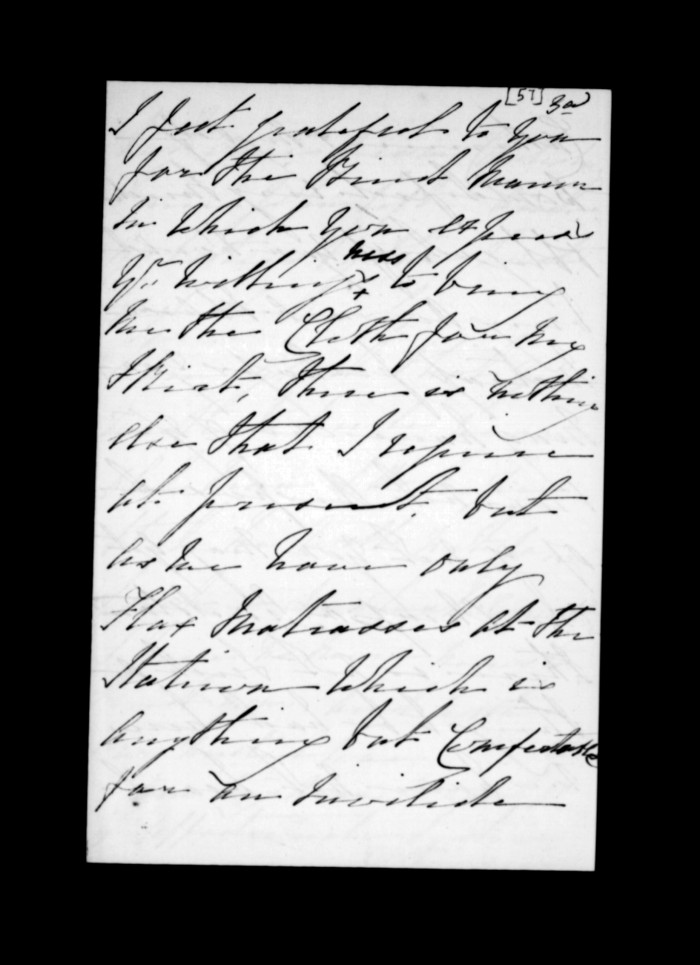 [57] 3a)
I feel grateful to you
for the kind manner
in which you express
yr. willingness to bring
me the Cloth for my
Skirt, there is nothing
else that I require
at present, but
as we have only
Flax Matrasses at the
Station which is
anything but Comfortable
for an Invilide